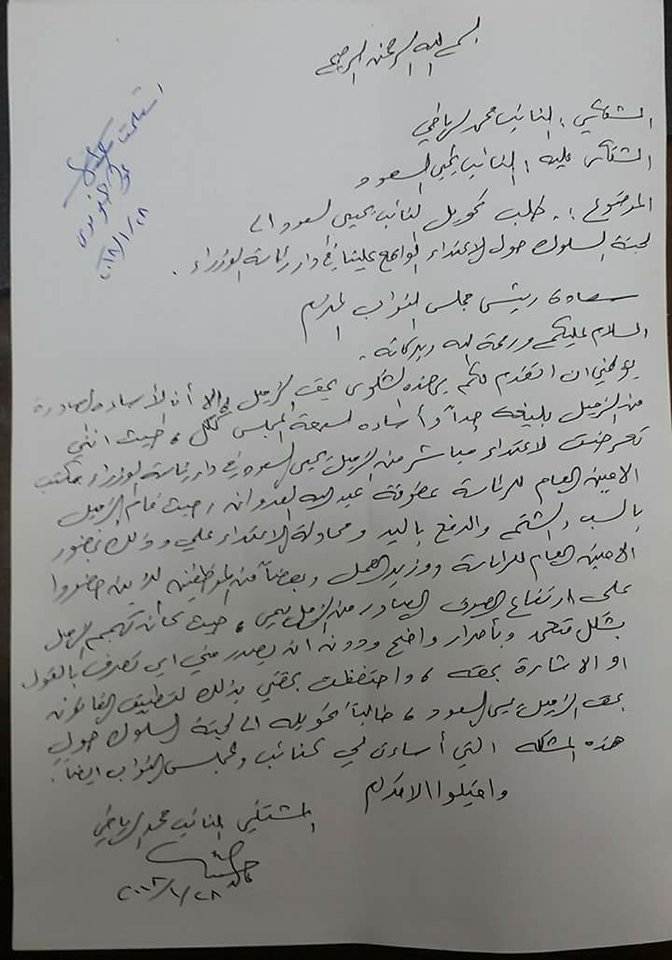 بسم الله الرحمن الرحيم
استلمت
٢٠١٨/١/٢٨
المشتكي : النائب محمد الرياطي
المشتكى عليه : النائب يحيى السعود
الموضوع : طلب تحويل النائب يحيى السعود الى
لجنة السلوك حول الاعتداء الواقع علينا في دار رئاسة الوزراء .
سعادة رئيس مجلس النواب المحترم
السلام عليكم ورحمة الله وبركاته .
يؤلمني ان اتقدم لكم بهذه الشكوى بحق الزميل إلا أن الأساءة الصادرة
من الزميل بليغة جداً وأساءة لسمعة المجلس ككل ، حيث انني
تعرضت لاعتداء مباشر من الزميل يحيى السعود في دار رئاسة الوزراء بمكتب
الامين العام للرئاسة عطوفة عبدالله العدوان حيث قام الزميل
بالسب والشتم والدفع باليد ومحاولة الاعتداء علي وذلك بحضور
الامين العام للرئاسة ووزير العمل وبعضاً من الموظفين الذين حضروا
على ارتفاع الصوت الصادر من الزميل يحيى ، حيث كان تهجم الزميل
بشكل متعمد وبأصرار واضح ودون ان يصدر مني اي تصرف بالقول
او الاشارة بحقه ، واحتفظت بحقي بذلك لتطبيق القانون
بحق الزميل يحيى السعود ، طالباً تحويله الى لجنة السلوك حول
هذه المشكله التي أساءت لي كنائب ومجلس النواب ايضاً .
واقبلوا الاحترام
المشتكي النائب محمد الرياطي
٢٠١٨/١/٢٨